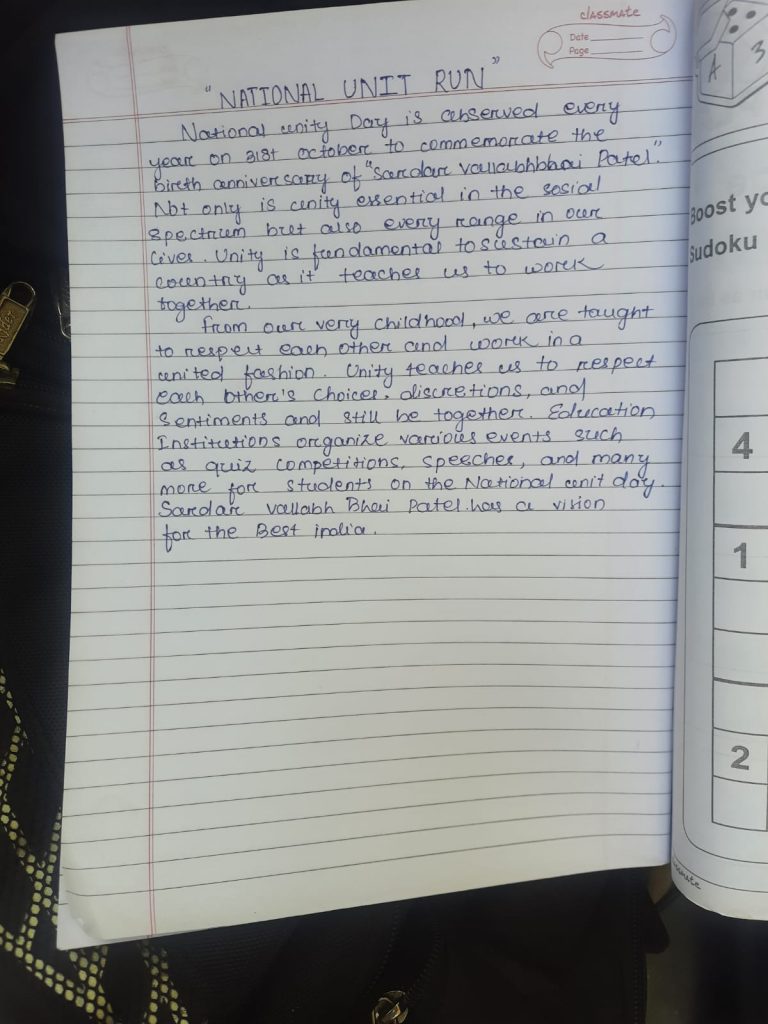 classmate
Date
Page
"NATIONAL UNIT RUN"
National unity Day is observed every
year on 31st october to commemorate the
birth anniversary of "Sardar vallabhbhai Patel".
Not only is unity essential in the sosial
spectrum but also every range in our
lives. Unity is fundamental to sustain a
country as it teaches us to work
together.
From our very childhood, we are taught
to respect each other and work in a
united fashion. Unity teaches us to respect
each other's choices, discretions, and
sentiments and still be together. Education
Institutions organize various events such
as quiz competitions, speeches, and many
more for students on the National unit day.
Sardar vallabh Bhai Patel.has a vision
for the Best india.
A
3
Boost yo
Sudoku
4
1
2
classmate